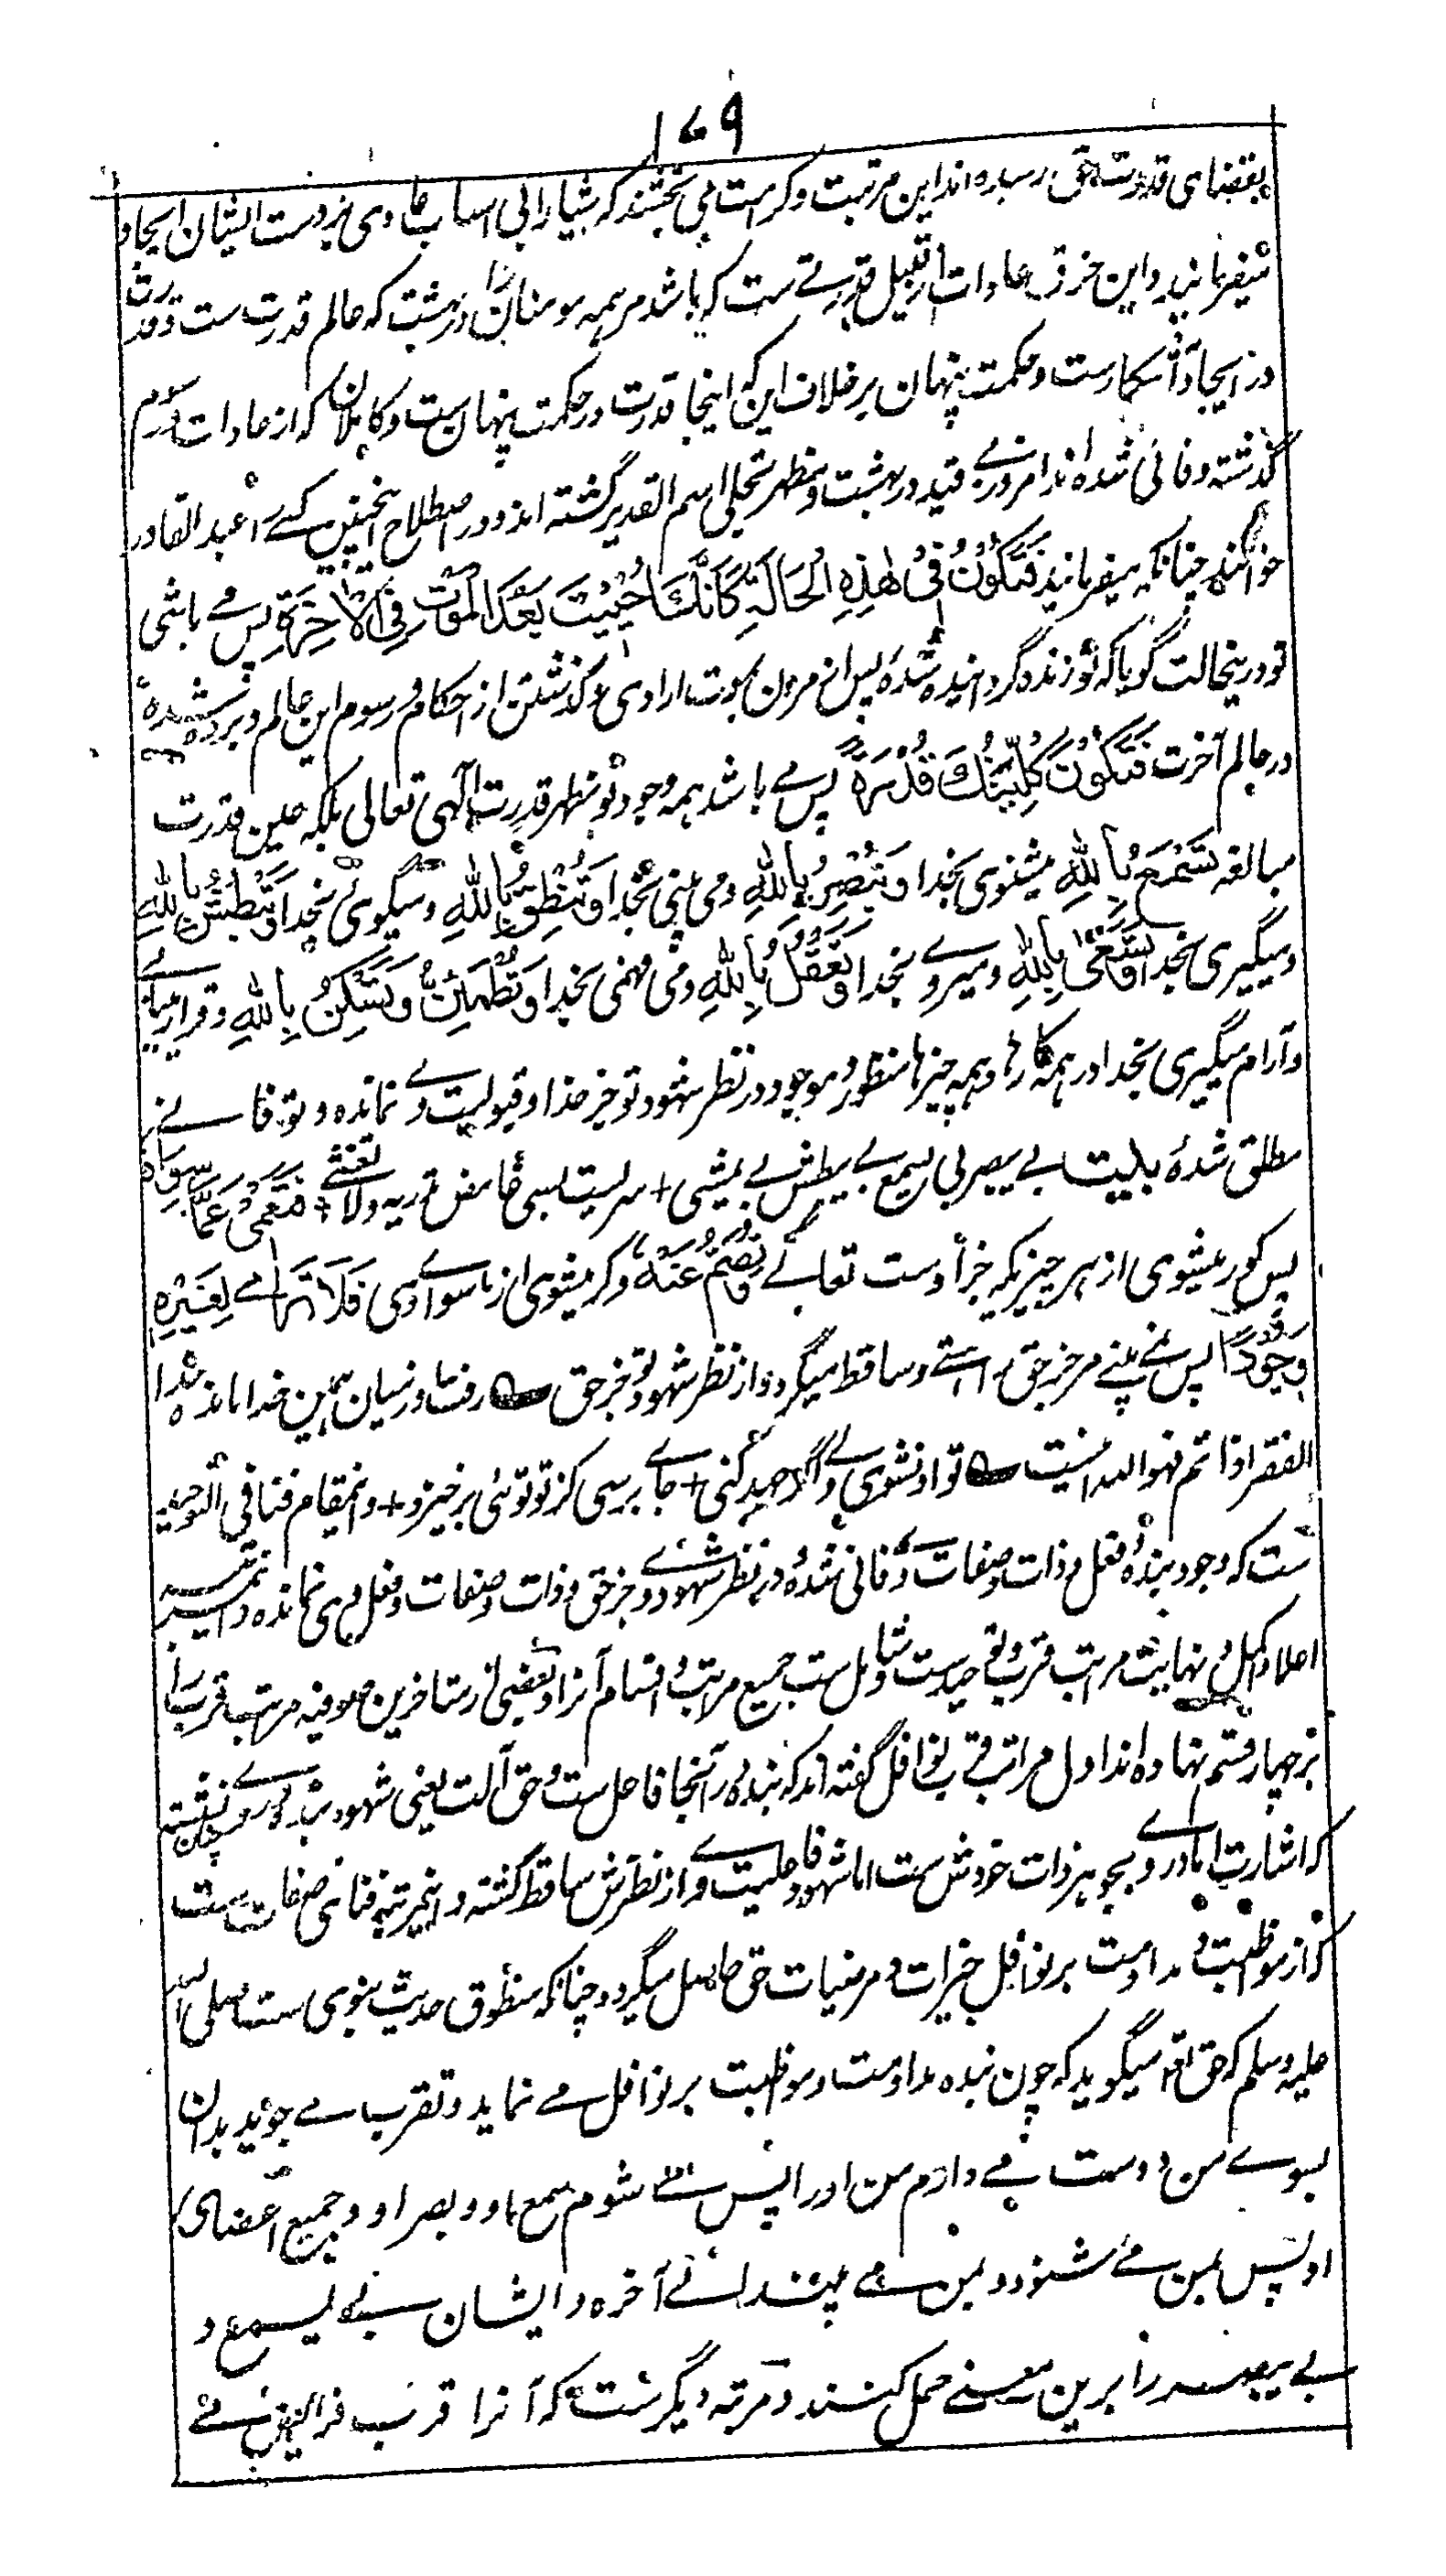 ۱۷۹
بقضای قدرت حق رسیده اند این مرتبت و کرامت می بخشند که اشیا را بی اسباب عادی بر دست ایشان ایجاد
میفرماید و این خرق عادات از قبیل قدرتے ست که باشد مر همه مومنان را در بهشت که عالم قدرت ست و قدرت
در ایجا آشکارست و حکمت پنهان بر خلاف این که اینجا قدرت در حکمت پنهان ست و کاملان که از عادات و رسوم
گذشته و فانی شده اند امروز بے قید در بهشت و مظهر تجلی اسم القدیر گشته اند و در اصطلاح اینچنین کسے را عبد القادر
خوانند چنانکه میفرمایند فَتَكُوْنُ فِیْ هٰذِهِ الْحَالَةِ كَاَنَّكَ اُحْیِیْتَ بَعْدَ الْمَوْتِ فِی الْاٰخِرَةِ پس مے باشی
تو در ینحالت گویا که تو زنده گردانیده شدهٔ پس از مردن بموت ارادی و گذشتن از احکام و رسوم این عالم و برده شدهٔ
در عالم آخرت فَتَكُوْنُ كُلِّیَّتُكَ قُدْرَةً پس مے باشد همه وجود تو مظهر قدرت الٰهی تعالی بلکه عین قدرت
مبالغه تَسْمَعُ بِاللّٰهِ میشنوی بخدا وَ تُبْصِرُ بِاللّٰهِ و می بینی بخدا وَ تَنْطِقُ بِاللّٰهِ و میگوئی بخدا وَ تَبْطِشُ بِاللّٰهِ
و میگیری بخدا وَ تَسْعٰی بِاللّٰهِ و میروے بخدا وَ تَعْقِلُ بِاللّٰهِ و می فهمی بخدا وَ تَطْمَئِنُّ وَ تَسْكُنُ بِاللّٰهِ و قرار میابے
و آرام میگیری بخدا در همه کارها و همه چیزها منظور و موجود در نظر شهود تو جز خدا و قیومیت وے نمانده و تو فانے
مطلق شدهٔ بیت بے یبصر بی یسمع بے یبطش بے یمشی + سریست بسی غامض دریه ولا تفشے + فَتَعْمٰی عَمَّا سِوَاهُ
پس کور میشوی از هر چیزیکه جز اوست تعالے وَ تَصُمُّ عَنْهُ و کر میشوی از ما سواے وی فَلَا تَرٰے لِغَیْرِهِ
وُجُوْدًا پس نمے بینے مر جز حق را هستے و ساقط میگردد از نظر شهود تو جز حق رفت او ز میان همین خدا ماند خدا
الفقر اذا تم فهو الله اینست تو او نشوی ولے اگر جهد کنی + جاے برسی کز تو توئی بر خیزد + و اینمقام فنا فی التوحید
ست که وجود بنده و فعل و ذات و صفات وے فانی شده در نظر شهودوے و جز حق و ذات و صفات و فعل وی نمانده و اینمرتبه
اعلا و اکمل و نهایت مراتب قرب و توحید ست و شامل ست جمیع مراتب و اقسام آنرا و بعضی از متاخرین صوفیه مراتب قرب را
بر چهار قسم نهاده اند اول مراتب قرب نوافل گفته اند که بنده در آنجا فاعل ست و حق آلت یعنی شهود بنده وے چنان گشته
که اشارت اماده و بجوهر ذات خودش ست اما شهود فاعلیت وے از نظرش ساقط گشته و اینمرتبه فنای صفات ست
که از مواظبت و مداومت بر نوافل خیرات و مرضیات حق حاصل میگردد چنانکه منطوق حدیث نبوی ست صلی الله
علیه و سلم که حق تع میگوید که چون بنده مداومت و مواظبت بر نوافل مے نماید و تقرب مے جوید بدان
بسوے من دوست مے دارم من او را پس مے شوم سمع او و بصر او و جمیع اعضای
او پس بمن مے شنود و بمن مے بیند الے آخره و ایشان بے یسمع و
بے یبصر را برین معنے حمل کنند و مرتبه دیگرست که آنرا قرب فرایض مے